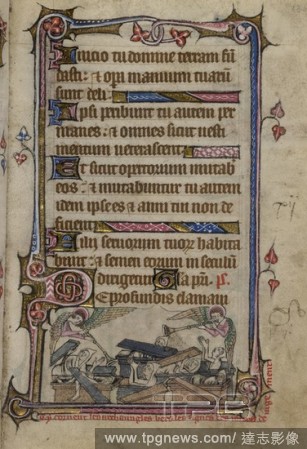 Initio tu domine terram fun
dasti: et opera manuum tuarum
sunt celi
Ipsi peribunt tu autem per
manes: et omnes sicut vesti
mentum veterascent
Et sicut opertorium mutab
eos: et mutabuntur tu autem
idem ipse es et anni tui non de
ficient
Filii servorum tuorum habita
bunt: et semen eorum in seculum
dirigetur Gloria patri. ps.
De profundis clamavi
TPG
www.tpgnews.com / 達志影像